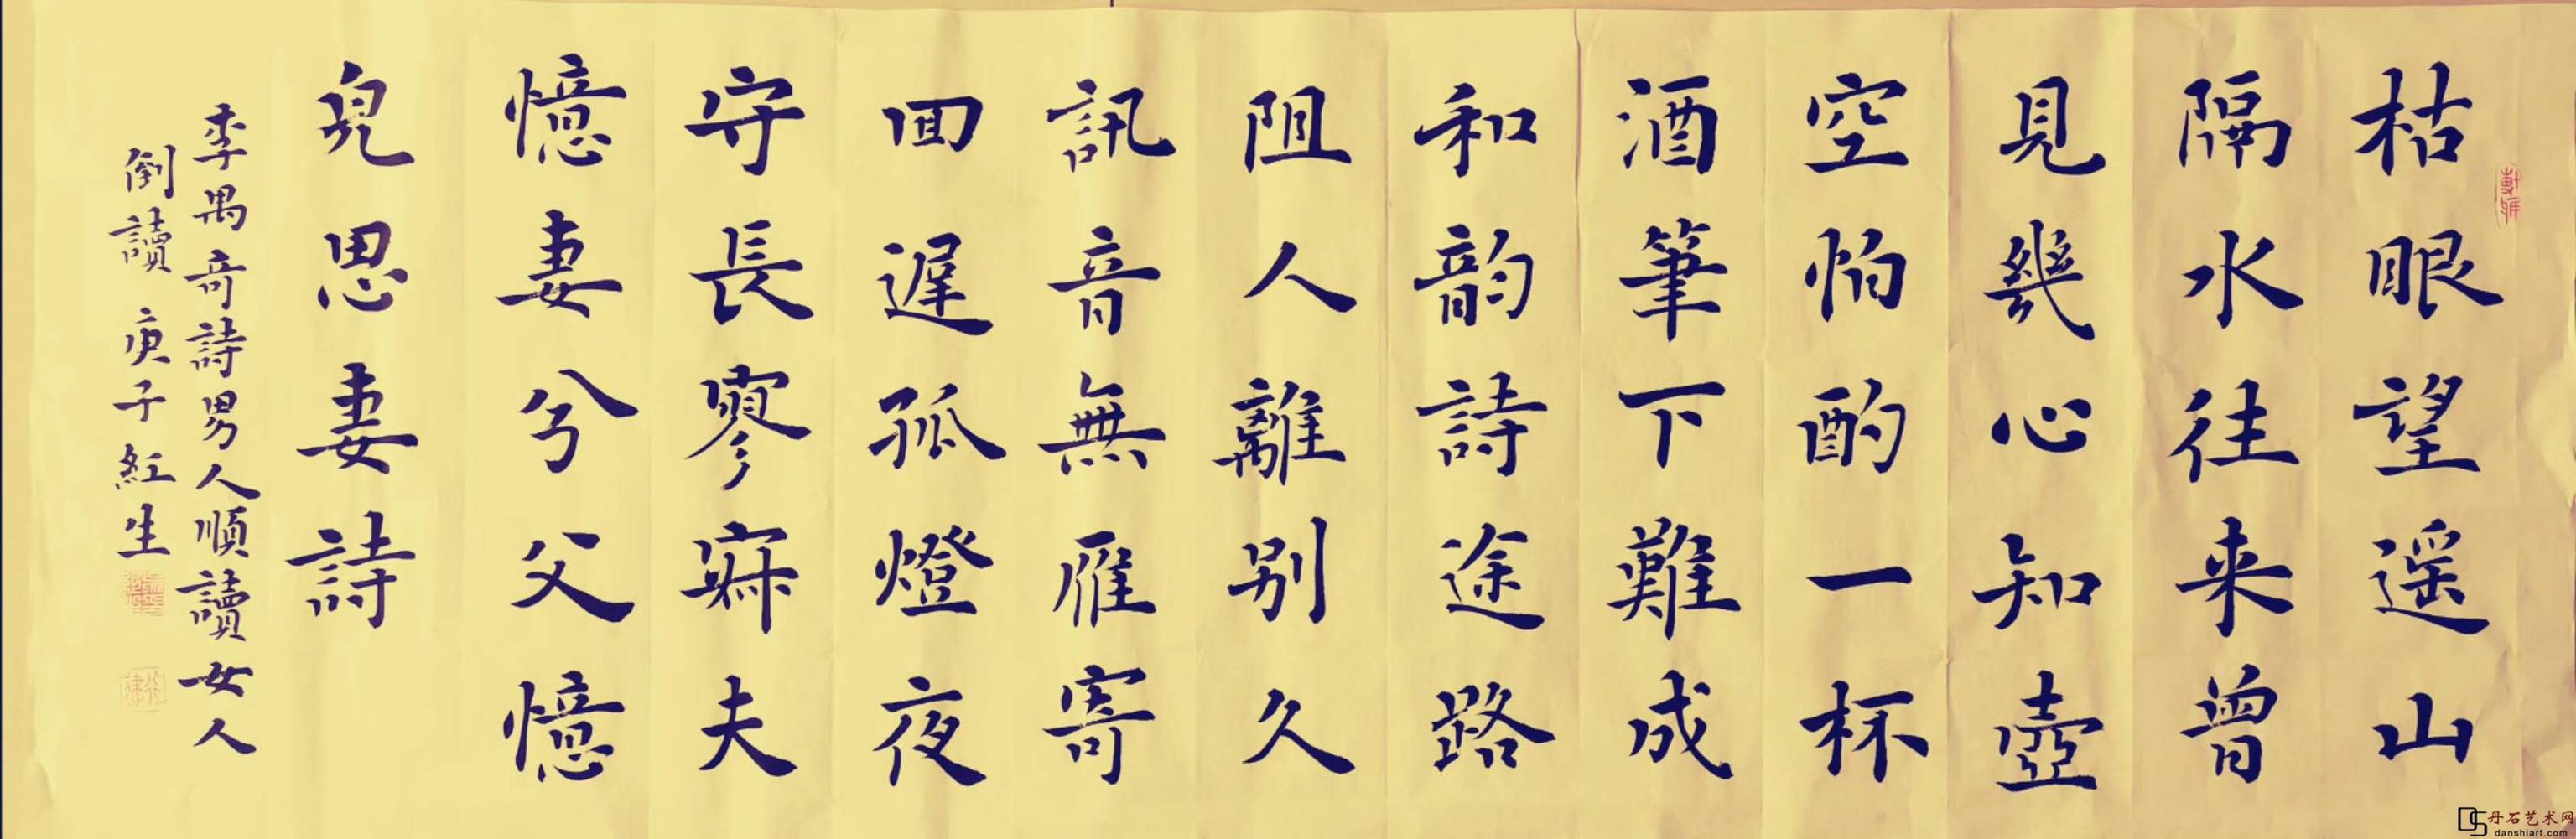 枯眼望遥山
隔水往来曾
見幾心知壺
空怕酌一杯
酒筆下難成
和韵詩途路
阻人離别久
訊音無雁寄
回遲孤燈夜
守長寥寂夫
憶妻兮父憶
兒思妻詩
李禺奇詩男人順讀女人
倒讀 庚子紅生
丹石艺术网
danshiart.com